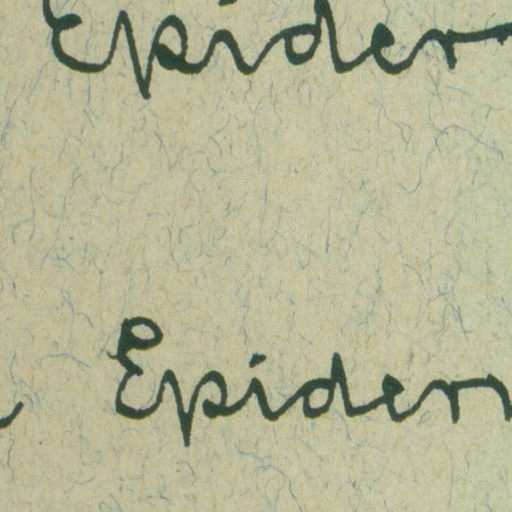 Epider
Epider